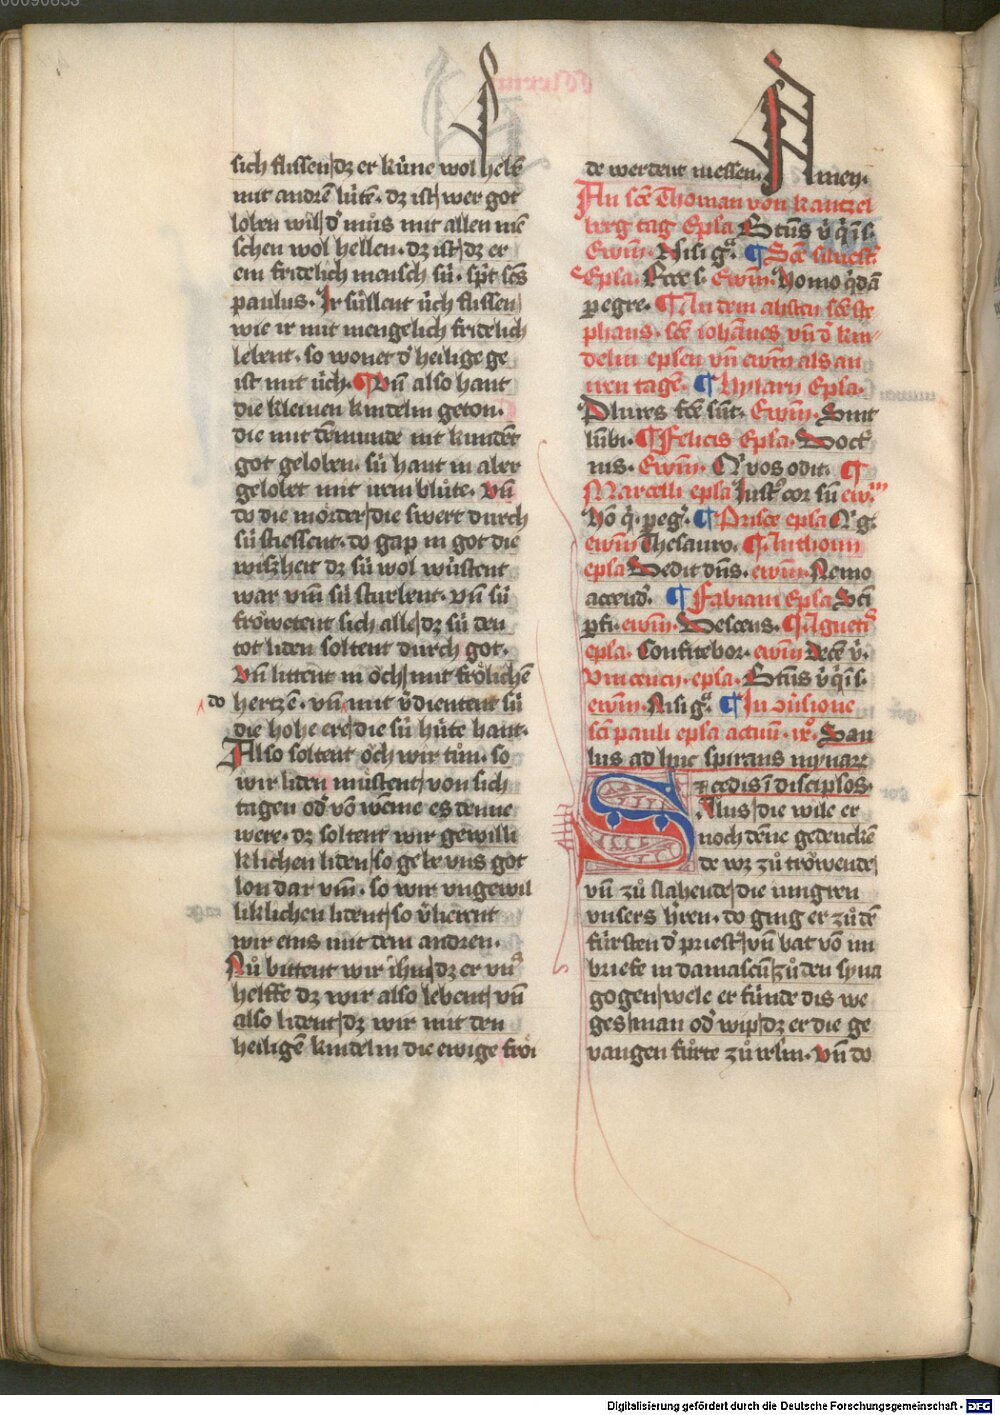 sich flissen dz er kúne wol hellē
mit andrē lútē. dz ist wer got
loben wil d' mu̇s mit allen mē
schen wol hellen. dz ist dz er
ein fridelich mensch sú. spt scs
paulus. Ir súllent úch flissen
wie ir mit mengelich fridelich
lebent. so wonet d' heilige ge
ist mit úch. ¶ Vn̄ also hant
die kleinen kindelin geton.
die mit dem munde nit kundēt
got geloben. sú hant in aber
gelobet mit irem blu̇te. Vn̄
do die mörder die swert durch
sú stiessent. do gap in got die
wiszheit dz sú wol wústent
war vm̄ sú sturbent. vn̄ sú
fröwetent sich alle dz sú den
tot liden soltent durch got.
Vn̄ littent in öch mit frölichē
do hertzē. vn̄ mit v'dientent sú
die hohe ere die sú húte hant.
Also soltent öch wir tu̇n. so
wir liden mu̇stent von sich
tagen od' vō weme es denne
were. dz soltent wir gewilli
klichen liden so gebe vns got
lon dar vm̄. so wir vngewil
liklichen lident so v'lierent
wir eins mit dem andren.
Nů bittent wir ihm dz er vns
helffe dz wir also lebent vn̄
also lident dz wir mit den
heiligē kindelin die ewige fröi
de werdent niessen. Amen.
An sce Thoman von kantzel
berg tag Epla Etūs v' q' i s.
Ewm. Nisi gᵃ. ¶ Sce siluestʳ
Epla. Ecce s. Ewm. Homo q'dā
pegre. ¶ An dem ahsten sce ste
phans. sce iohānes vn̄ d' kin
delin epseln vn̄ ewm als an
iren tagē. ¶ Hylarii Epla.
Plures fce sūt. Ewm. Sint
lūbi. ¶ Felicis Epla. Doctʳ
nis. Ewm. Q' vos odit. ¶
Marcelli epla Just' cor sū ew.
Hō q'. peg'. ¶ Prisce epla Q' g.
ewm Thesauro. ¶ Anthonii
epla Dedit dūs. ewm. Nemo
accend'. ¶ Fabiani Epla Sci
p fi. ewm. Descens. ¶ Agnetʳ
epla. Confitebor. ewm Decē v'.
Vincencii. epla. Etūs v' q' i s.
ewm. Nisi gᵃ. ¶ In 9u'sione
sci pauli epla actuū. ix°. Sau
lus ad huc spirans mynarʒ
⁊ cedis ī disciplos.
SAlus die wile er
noch dēne gedenckē
de wz zů tröwende
vn̄ zů slahende die iungren
vnsers h'ren. do ging er zů dē
fúrsten d' priestʳ vn̄ bat vō im
briefe in damascū zů den syna
gogen wele er funde dis we
ges man od' wip dz er die ge
vangen fůrte zů irlm. vn̄ do
Digitalisierung gefördert durch die Deutsche Forschungsgemeinschaft - DFG